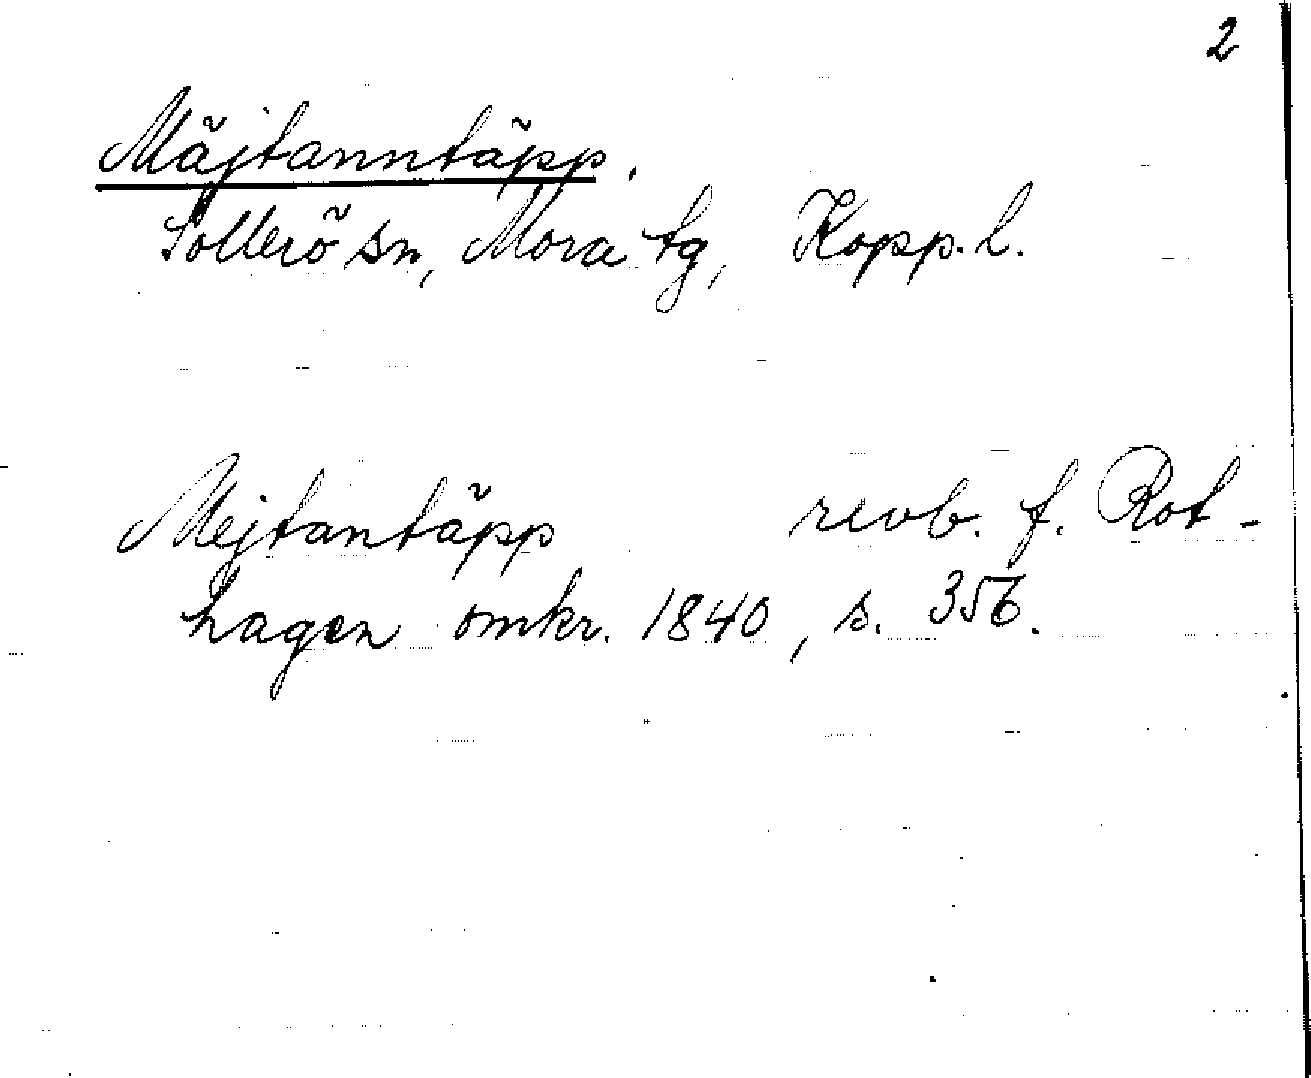 2
Mäjtanntäpp.
Sollerö sn, Mora tg, Kopp. l.
Mejtantäpp revb. f. Rot-
hagen omkr. 1840, s. 356.